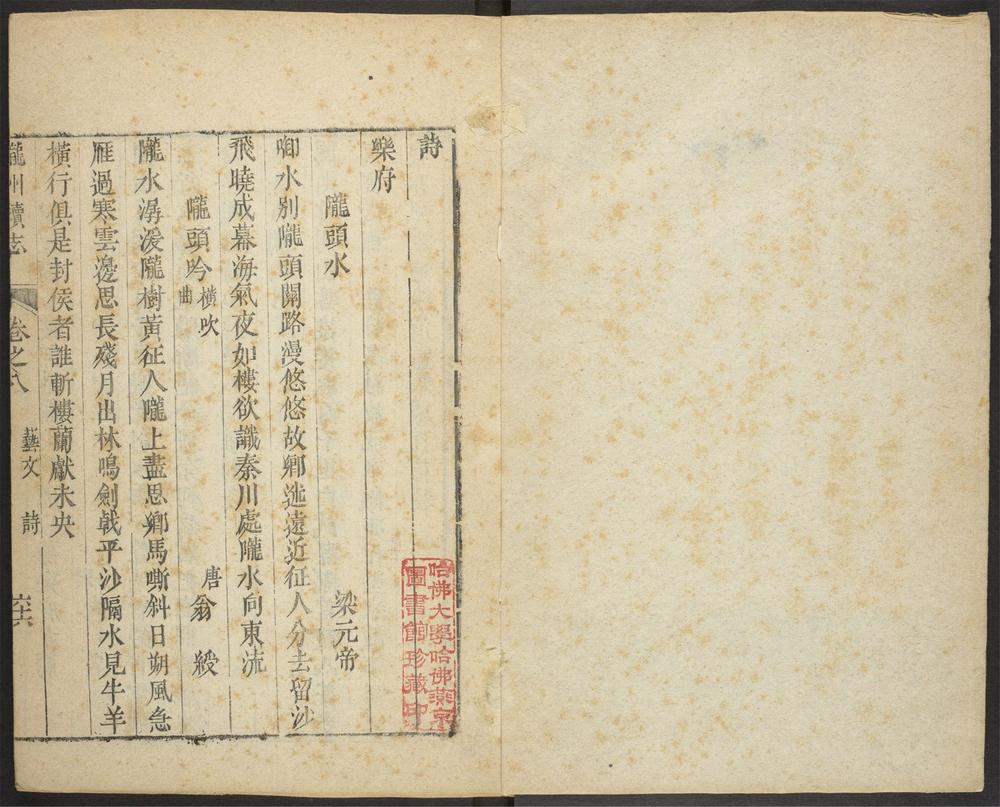 詩
樂府
隴頭水 梁元帝
啣水別隴頭關路漫悠悠故鄉迷遠近征人分去留沙
飛曉成幕海氣夜如樓欲識秦川處隴水向東流
隴頭吟 橫吹曲 唐翁 綬
隴水潺湲隴樹黃征人隴上盡思鄉馬嘶斜日朔風急
雁過寒雲邊思長殘月出林鳴劍戟平沙隔水見牛羊
橫行俱是封侯者誰斬樓蘭獻未央
隴州續志 卷之八 藝文 詩 六六
哈佛大學哈佛燕京
圖書館珍藏印